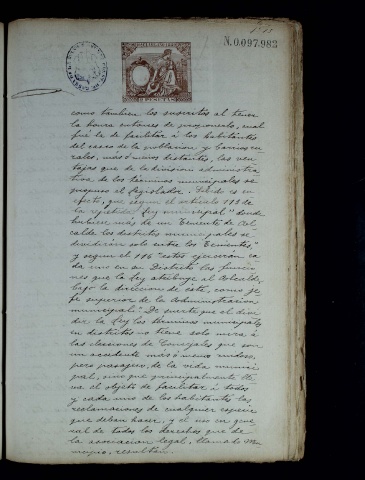 N.0.097.983
como tambien los suscritos al tener
la honra entonces de proponerlo, cual
fué la de facilitar á los habitantes
del casco de la poblacion y barrios ru
rales, más ó menos distantes, las ven
tajas que de la division administra
tiva de los términos municipales se
propuso el legislador. Todo es en
efecto, que segun el artículo 113 de
la repetida ley municipal "donde
hubiere más de un Teniente de Al
calde los distritos municipales se
dividirán solo entre los Tenientes,"
y segun el 116 "estos ejercerán ca
da uno en su Distrito las funcio
nes que la ley atribuye al Alcalde,
bajo la direccion de éste, como je
fe superior de la Administracion
municipal". De suerte que el divi
dir la ley los términos municipales
en distritos no tiene solo mira á
las elecciones de Concejales que son
un accidente más ó menos ruidoso,
pero pasajero, de la vida munici
pal, sino que principalmente lle
va el objeto de facilitar á todos
y cada uno de los habitantes las
reclamaciones de cualquier especie
que deban hacer, y el uso en gene
ral de todos los derechos que de
la asociacion legal, llamada Mu
nicipio, resultan.